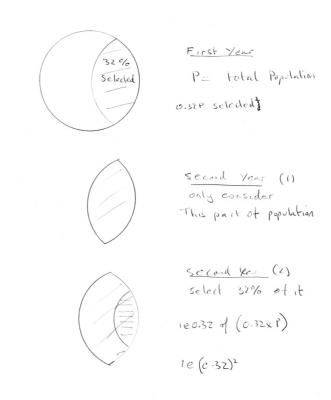 32%
Selected
First Year
P = total Population
0.32P selected}
Second Year (1)
only consider
This part of population
Second Year (2)
select 32% of it
ie 0.32 of (0.32xP)
ie (0.32)²